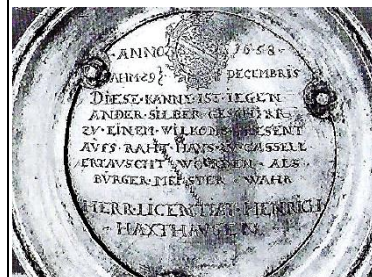 ANNO 1658
AHM 29 DECEMBRIS
DIESE·KANNE·IST·IEGEN
ANDER·SILBER·GESCHIRR
ZU·EINEM·WILKOM·PRESENT
AUFS·RAHT·HAUS·ZU·CASSELL
ERTAUSCHT·WORDEN·ALS
BÜRGER·MEISTER·WAHR
HERR·LICENTIAT·HENRICH
HAXTHAUSEN